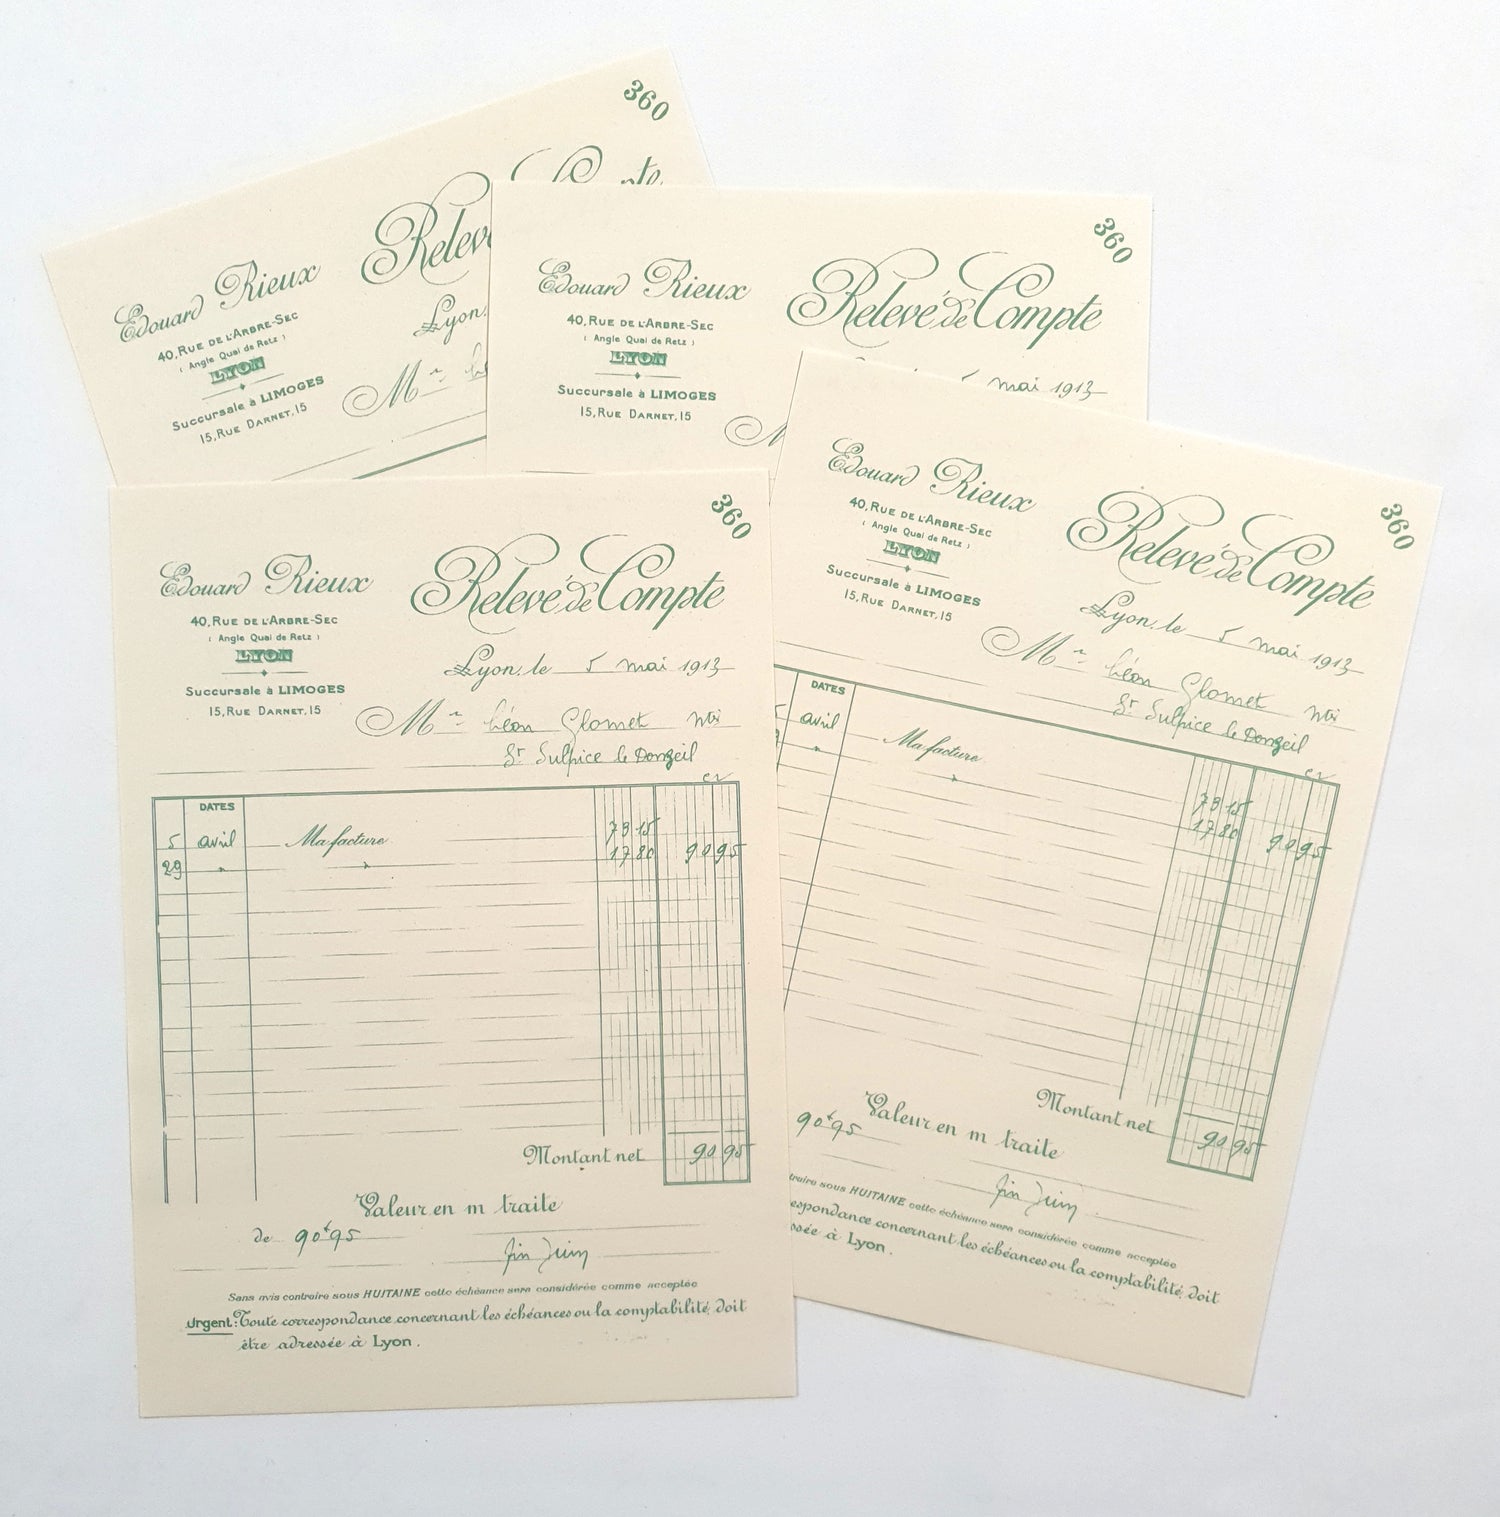 360
Relev
Edouard Rieux
40, RUE DE L'ARBRE-SEC
( Angle Quai de Retz )
LYON
Succursale à LIMOGES
15, RUE DARNET, 15
Lyon,
Mr
360
Edouard Rieux
Relevé de Compte
40, RUE DE L'ARBRE-SEC
( Angle Quai de Retz )
LYON
Succursale à LIMOGES
15, RUE DARNET, 15
5 mai 1913
360
Edouard Rieux
Relevé de Compte
40, RUE DE L'ARBRE-SEC
( Angle Quai de Retz )
LYON
Succursale à LIMOGES
15, RUE DARNET, 15
Lyon, le 5 mai 1913
Mr Léon Glomet
St Sulpice le Donzeil
DATES
avril Ma facture 73 15
" " 17 80 90 95
Montant net 90 95
Valeur en m traite
90f95
fin Juin
traire sous HUITAINE cette échéance sera considérée comme acceptée
espondance concernant les échéances ou la comptabilité, doit
ssée à Lyon.
360
Edouard Rieux
Relevé de Compte
40, RUE DE L'ARBRE-SEC
( Angle Quai de Retz )
LYON
Succursale à LIMOGES
15, RUE DARNET, 15
Lyon, le 5 mai 1913
Mr Léon Glomet
St Sulpice le Donzeil
DATES
5 avril Ma facture 73 15
29 " " 17 80 90 95
Montant net 90 95
Valeur en m traite
de 90f95
fin Juin
Sans avis contraire sous HUITAINE cette échéance sera considérée comme acceptée
Urgent: Toute correspondance concernant les échéances ou la comptabilité, doit
être adressée à Lyon.